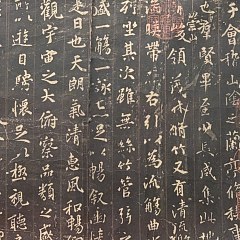 于會稽山陰之蘭亭
也群賢畢至少長咸集此地
峻領茂林脩竹又有清流
湍暎帶左右引以為流觴曲
列坐其次雖無絲竹管弦
盛一觴一詠亦足以暢敘幽情
是日也天朗氣清惠風和暢
觀宇宙之大俯察品類之盛
所以遊目騁懷足以極視聽